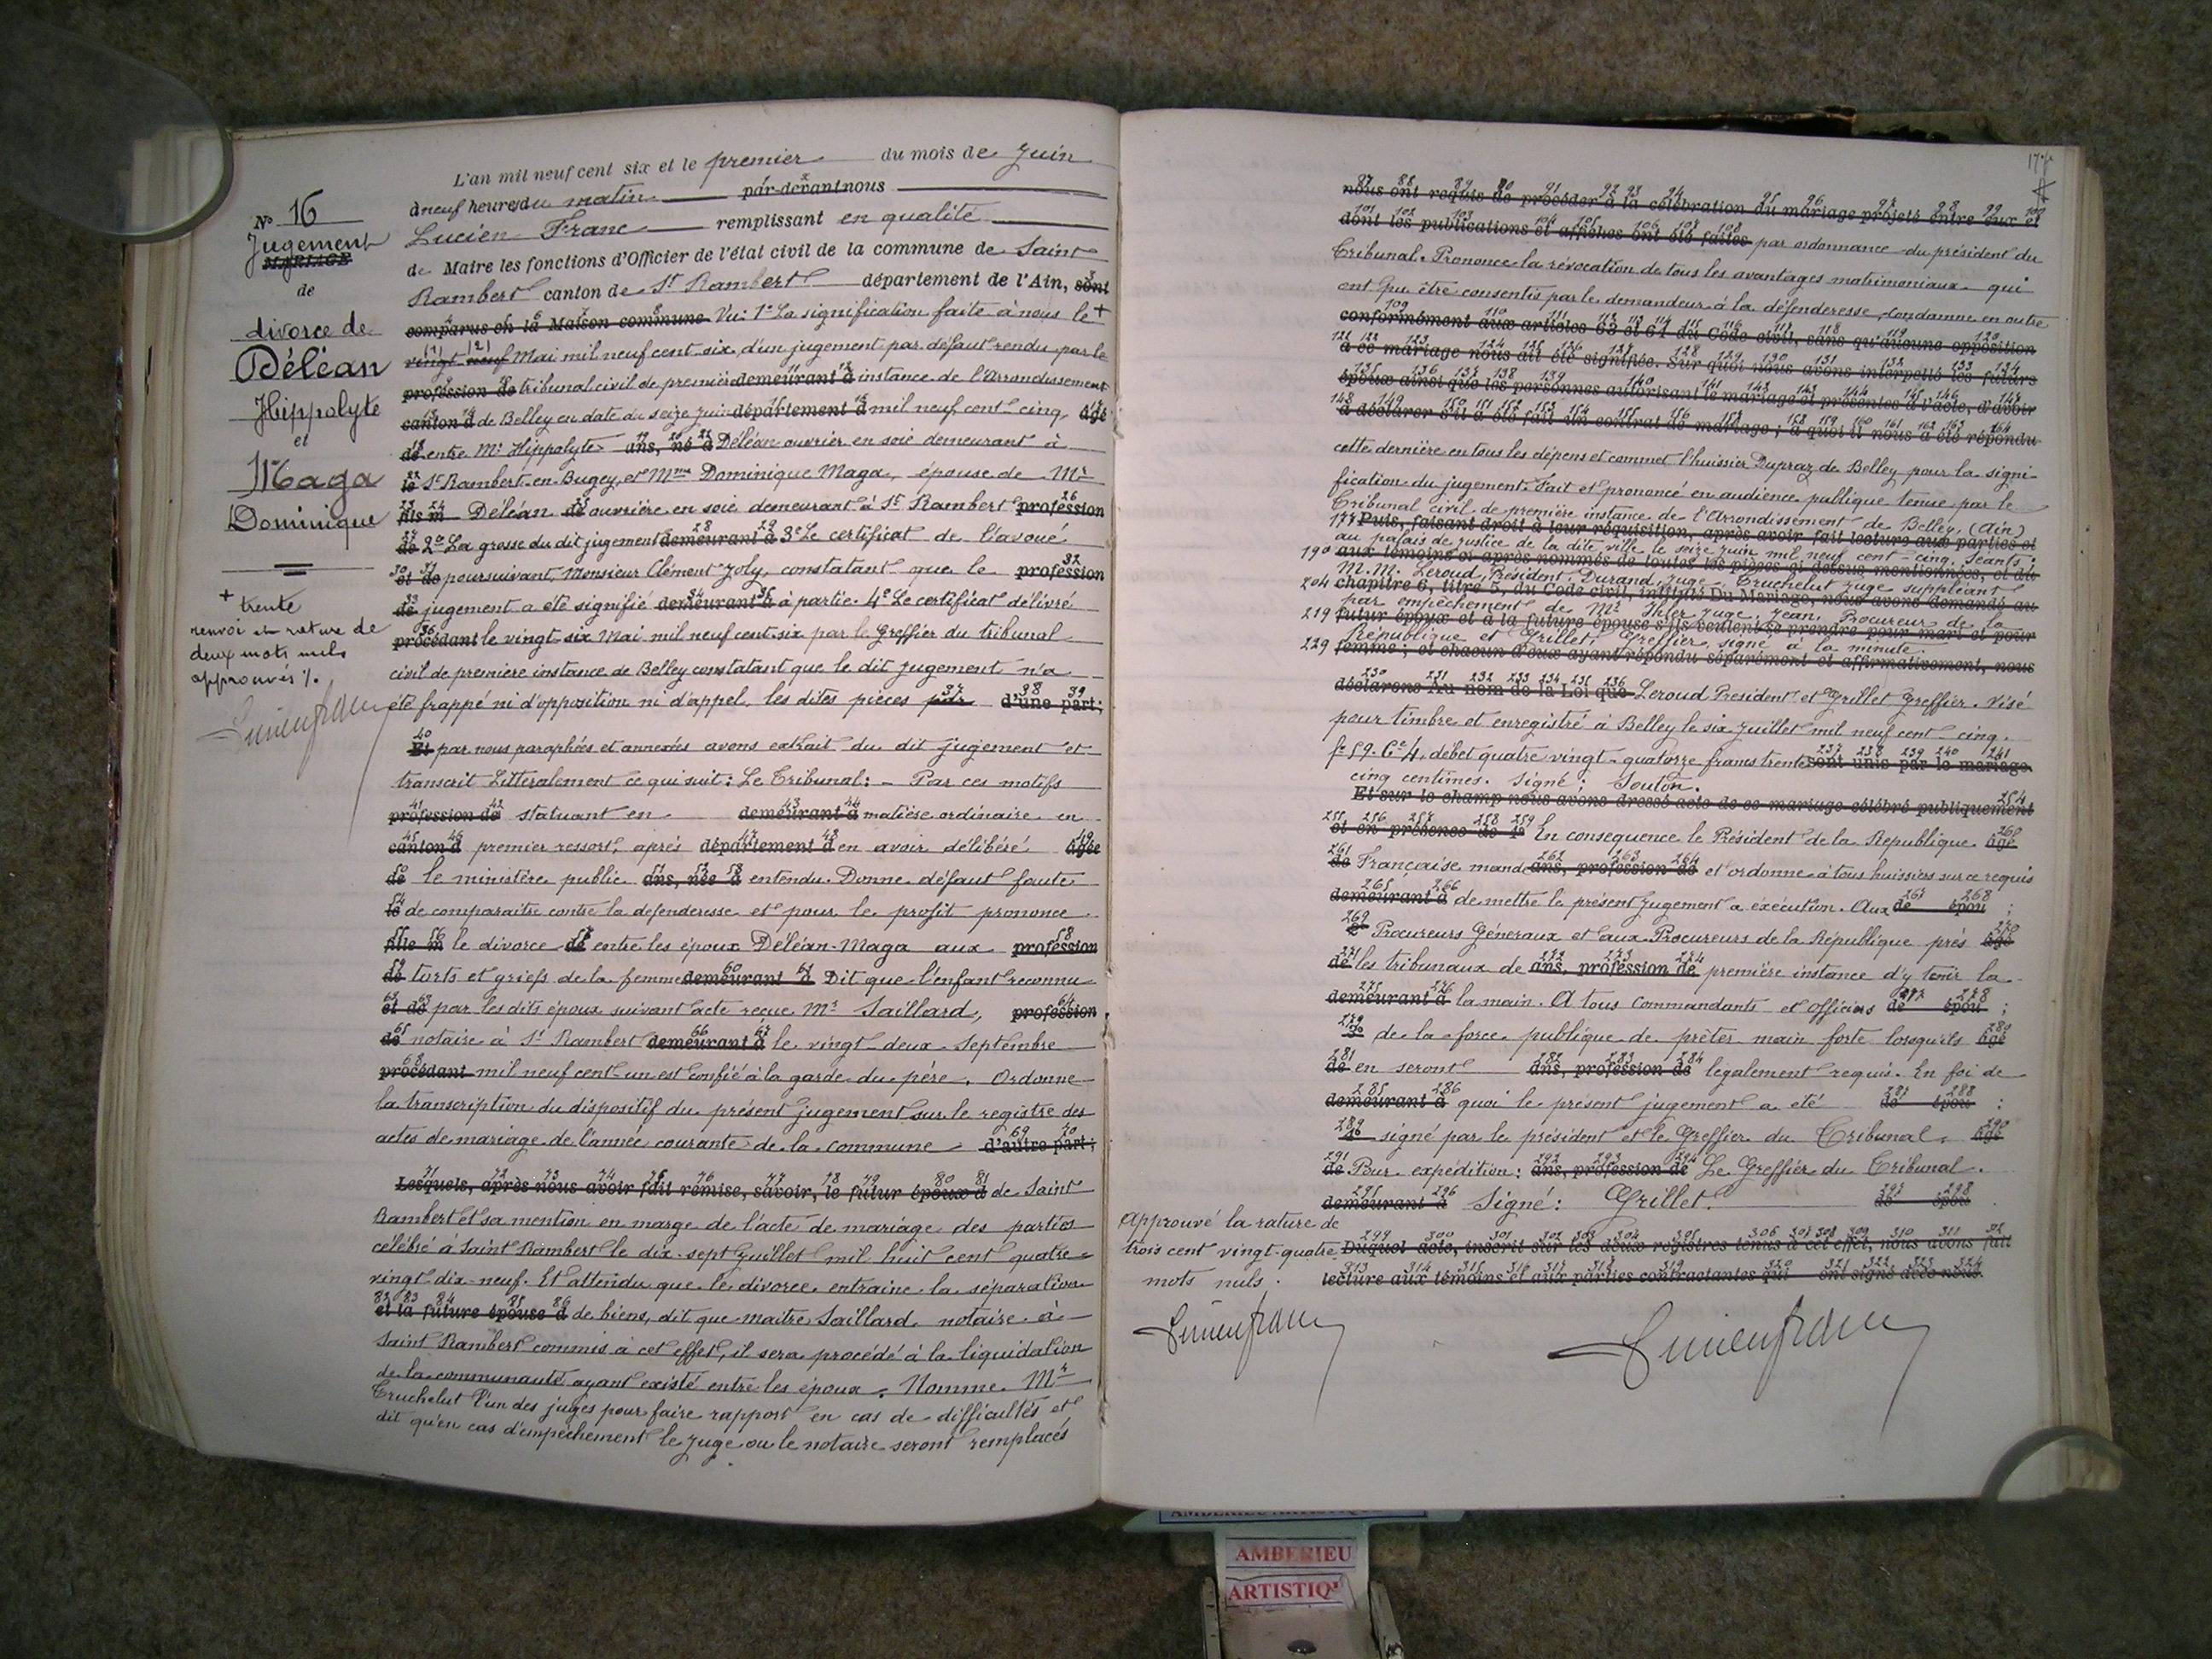 N° 16
Jugement
MARIAGE
de
divorce de
Déléan
Hippolyte
et
Maga
Dominique
+ trente
renvoi et rature de
deux mots nuls
approuvés %.
Lucien Franc
L'an mil neuf cent six et le premier du mois de Juin
à neuf heures du matin par-devant nous
Lucien Franc remplissant en qualité
de Maire les fonctions d'Officier de l'état civil de la commune de Saint
Rambert canton de St Rambert département de l'Ain, sont
comparus en la Maison commune Vu: 1° La signification faite à nous le +
vingt neuf Mai mil neuf cent six, d'un jugement par défaut rendu par le
profession de tribunal civil de première demeurant à instance de l'Arrondissement
canton d de Belley en date du seize juin département d mil neuf cent cinq, âgé
de entre Mr Hippolyte ans, né à Déléan ouvrier en soie demeurant à
le St Rambert-en-Bugey, et Mme Dominique Maga, épouse de Mr
fils m Déléan de ouvrière en soie demeurant à St Rambert profession
de 2° La grosse du dit jugement demeurant à 3° Le certificat de l'avoué
et de poursuivant, Monsieur Clément Joly, constatant que le profession
de jugement a été signifié demeurant à à partie. 4° Le certificat délivré
procédant le vingt-six Mai mil neuf cent six par le Greffier du tribunal
civil de première instance de Belley constatant que le dit jugement n'a
été frappé ni d'opposition ni d'appel, les dites pièces par d'une part;
Et par nous paraphées et annexées avons extrait du dit jugement et
transcrit Littéralement ce qui suit: Le Tribunal: - Par ces motifs
profession de statuant en demeurant à matière ordinaire en
canton d premier ressort, après département d en avoir délibéré âgée
de le ministère public ans, née à entendu. Donne défaut faute
le de comparaitre contre la défenderesse et pour le profit prononce
fille m le divorce de entre les époux Déléan-Maga aux profession
de torts et griefs de la femme demeurant à Dit que l'enfant reconnu
et de par les dits époux suivant acte reçue Mr Saillard, profession
de notaire à St Rambert demeurant à le vingt-deux Septembre
procédant mil neuf cent un est confié à la garde du père. Ordonne
la transcription du dispositif du présent jugement sur le registre des
actes de mariage de l'année courante de la commune d'autre part;
Lesquels, après nous avoir fait remise, savoir, le futur époux d de Saint
Rambert et sa mention en marge de l'acte de mariage des parties
célébré à Saint Rambert le dix-sept Juillet mil huit cent quatre-
vingt-dix-neuf. Et attendu que le divorce entraine la séparation
et la future épouse d de biens, dit que maître Saillard, notaire à
Saint Rambert commis à cet effet, il sera procédé à la liquidation
de la communauté ayant existé entre les époux. Nomme Mr
Truchelut l'un des juges pour faire rapport en cas de difficultés et
dit qu'en cas d'empêchement le Juge ou le notaire seront remplacés
nous ont requis de procéder à la célébration du mariage projeté entre eux et
dont les publications et affiches ont été faites par ordonnance du président du
Tribunal. Prononce la révocation de tous les avantages matrimoniaux qui
ont pu être consentis par le demandeur à la défenderesse, condamne en outre
conformément aux articles 63 et 64 du Code civil, sans qu'aucune opposition
à ce mariage nous ait été signifiée. Sur quoi nous avons interpellé les futurs
époux ainsi que les personnes autorisant le mariage et présentes à l'acte, d'avoir
à déclarer s'il a été fait un contrat de mariage; à quoi il nous a été répondu
cette dernière en tous les dépens et commet l'huissier Dupraz de Belley pour la signi-
fication du jugement. Fait et prononcé en audience publique tenue par le
Tribunal civil de première instance de l'Arrondissement de Belley, (Ain)
177 Puis, faisant droit à leur réquisition, après avoir fait lecture aux parties et
au palais de justice de la dite ville le seize juin mil neuf cent cinq. Séants:
190 aux témoins ci-après nommés de toutes les pièces ci-dessus mentionnées, et du
M.M. Leroud, Président, Durand, Juge, Truchelut Juge suppléant
204 chapitre 6, titre 5, du Code civil, intitulé Du Mariage, nous avons demandé au
par empêchement de Mr Juge, Jean, Procureur de la
219 futur époux et à la future épouse s'ils veulent se prendre pour mari et pour
République et Grillet, Greffier, signé à la minute:
229 femme; et chacun d'eux ayant répondu séparément et affirmativement, nous
déclarons Au nom de la Loi que Leroud President et Grillet Greffier. Visé
pour timbre et enregistré à Belley le six Juillet mil neuf cent cinq.
f° 59. Ce 4, débet quatre vingt-quatorze francs trente sont unis par le mariage.
cinq centimes. Signé: Souton.
Et sur le champ nous avons dressé acte de ce mariage célébré publiquement
et en présence de 1° En conséquence le Président de la République âgé
de Française mande ans, profession de et ordonne à tous huissiers sur ce requis
demeurant à de mettre le présent Jugement à exécution. Aux de épou ;
2° Procureurs Généraux et aux Procureurs de la République près âgé
de les tribunaux de ans, profession de première instance d'y tenir la
demeurant à la main. A tous commandants et officiers de épou ;
3° de la force publique de prêter main forte lorsqu'ils âgé
de en seront ans, profession de légalement requis. En foi de
demeurant à quoi le présent jugement a été de épou :
4° signé par le président et le Greffier du Tribunal. âgé
de Pour expédition: ans, profession de Le Greffier du Tribunal.
demeurant à Signé: Grillet. de épou
Duquel acte, inscrit sur les deux registres tenus à cet effet, nous avons fait
lecture aux témoins et aux parties contractantes qui ont signé avec nous.
Approuvé la rature de
trois cent vingt-quatre
mots nuls.
Lucien Franc
Lucien Franc
AMBERIEU
ARTISTIQ